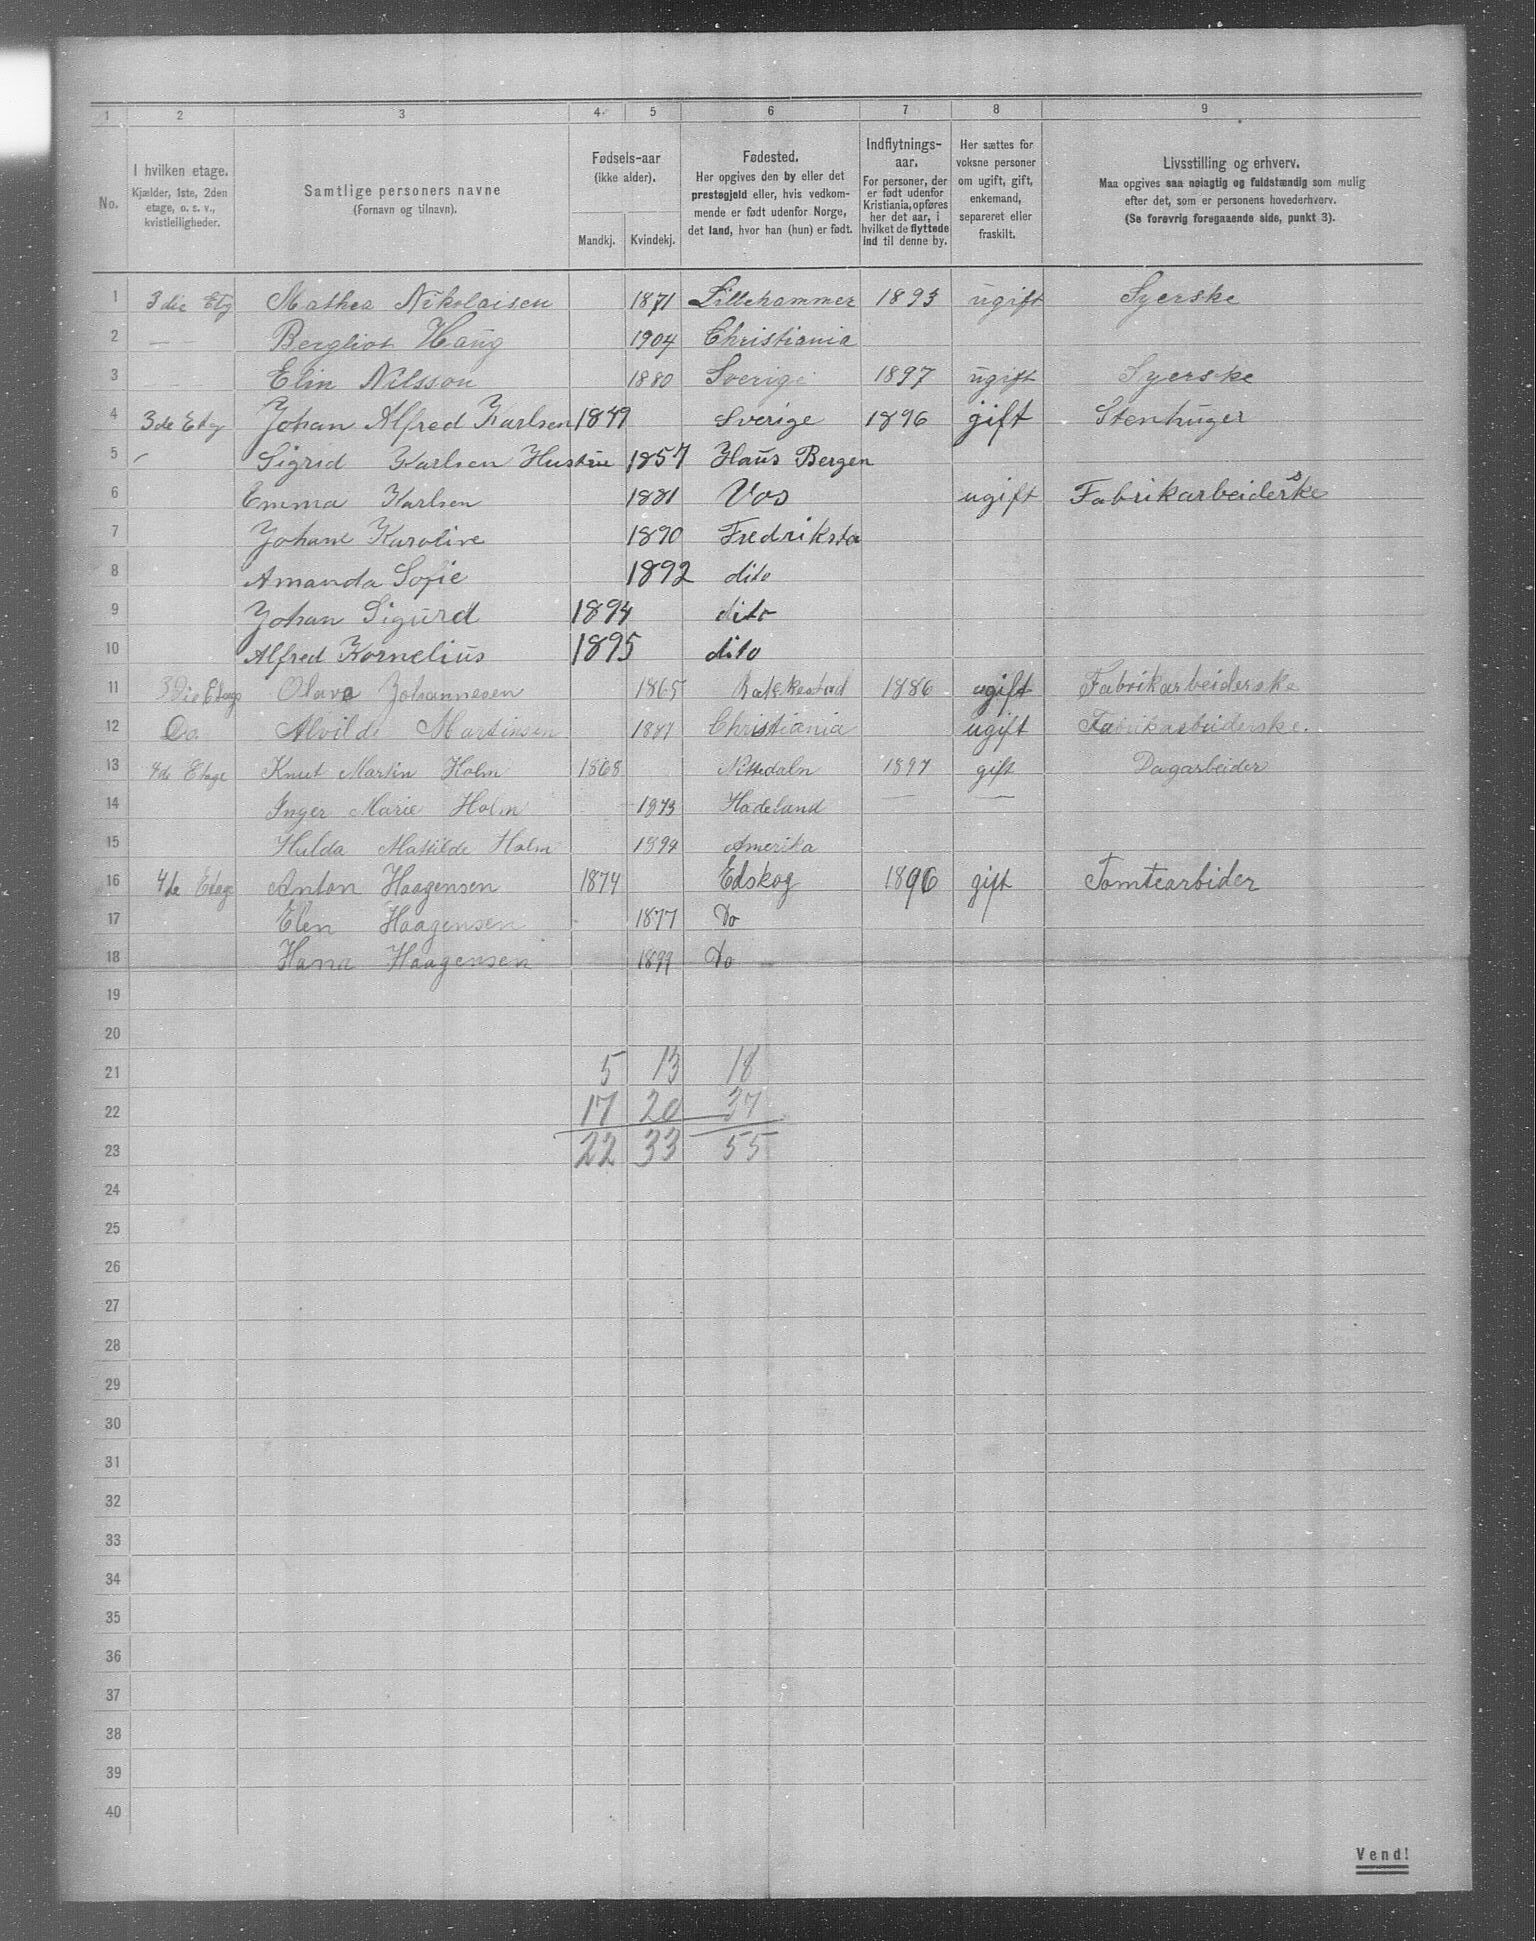 1 2 3 4 5 6 7 8 9
No.
I hvilken etage.
Kjælder, 1ste, 2den
etage, o. s. v.,
kvistleiligheder.
Samtlige personers navne
(Fornavn og tilnavn).
Fødsels-aar
(ikke alder).
Mandkj. Kvindekj.
Fødested.
Her opgives den by eller det
prestegjeld eller, hvis vedkom-
mende er født udenfor Norge,
det land, hvor han (hun) er født.
Indflytnings-
aar.
For personer, der
er født udenfor
Kristiania, opføres
her det aar, i
hvilket de flyttede
ind til denne by.
Her sættes for
voksne personer
om ugift, gift,
enkemand,
separeret eller
fraskilt.
Livsstilling og erhverv.
Maa opgives saa nøiagtig og fuldstændig som mulig
efter det, som er personens hovederhverv.
(Se forøvrig foregaaende side, punkt 3).
1 3die Etg Mathea Nikolaisen 1871 Lillehammer 1893 ugift Syerske
2 — — Bergliot Haug 1904 Christiania
3 — Elin Nilsson 1880 Sverige 1897 ugift Syerske
4 3de Etg Johan Alfred Karlsen 1849 Sverige 1896 gift Stenhuger
5 Sigrid Karlsen Hustru 1857 Haus Bergen
6 Emma Karlsen 1881 Vos ugift Fabrikarbeiderske
7 Johane Karoline 1890 Fredriksta
8 Amanda Sofie 1892 dito
9 Johan Sigurd 1894 dito
10 Alfred Kornelius 1895 dito
11 3die Etage Olava Johannesen 1865 Rakkestad 1886 ugift Fabrikarbeiderske
12 Do. Alvilde Martinsen 1887 Christiania ugift Fabrikarbeiderske.
13 4de Etage Knut Martin Holm 1868 Nittedaln 1897 gift Dagarbeider
14 Inger Marie Holm 1873 Hadeland — —
15 Hulda Matilde Holm 1894 Amerika
16 4de Etage Anton Haagensen 1874 Edskog 1896 gift Tomtearbider
17 Elen Haagensen 1877 Do
18 Hana Haagensen 1899 Do
19
20
21 5 13 18
22 17 20 37
23 22 33 55
24
25
26
27
28
29
30
31
32
33
34
35
36
37
38
39
40
Vend!